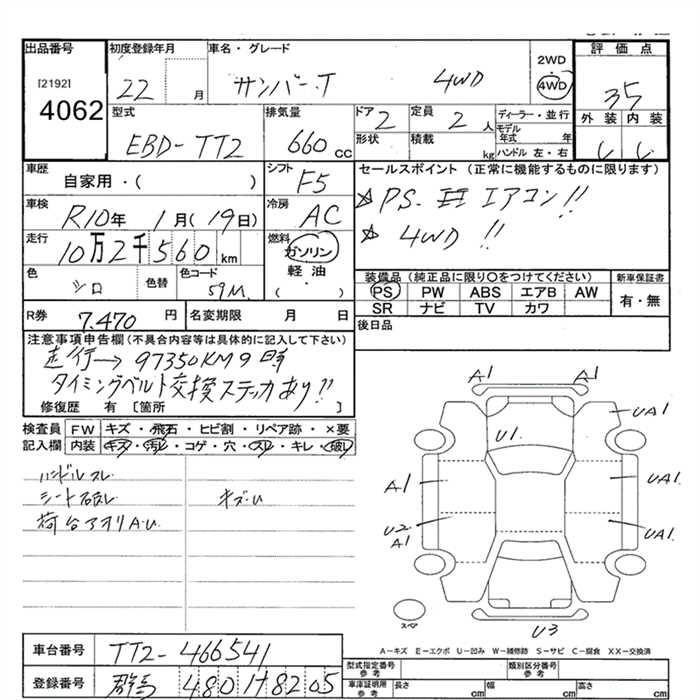 出品番号 初度登録年月 車名・グレード 2WD 4WD 評価点
[2192]
4062
22 月 サンバー.T 4WD 35
型式 排気量 ドア 定員 ディーラー・並行 外装 内装
EBD-TT2 660 cc 2 2人 モデル年式 年
形状 積載 kg ハンドル 左・右
車歴 シフト セールスポイント (正常に機能するものに限ります)
自家用・( ) F5
☆PS. エアコン!!
車検 冷房
R10年 1月(19日) AC
☆4WD !!
走行 燃料
10万2千560 km ガソリン
軽油
( )
色 色替 色コード
シロ 59M.
装備品 (純正品に限り○をつけてください) 新車保証書
PS PW ABS エアB AW 有・無
SR ナビ TV カワ
R券 7.470 円 名変期限 月 日
後日品
注意事項申告欄(不具合内容等は具体的に記入して下さい)
走行→97350KM時
タイミングベルト交換ステッカあり!!
修復歴 有 [箇所 ]
検査員 FW キズ・飛石・ヒビ割・リペア跡・×要
記入欄 内装 キズ・汚れ・コゲ・穴・スレ・キレ・破レ
ハンドルスレ
シート破レ キズ・U
荷台アオリA・U
A1 A1
UA1
U1.
A1 UA1
U2 A1 UA1.
スペア
U3
A-キズ E-エクボ U-凹み W-補修跡 S-サビ C-腐食 XX-交換済
車台番号 TT2-466541
登録番号 群馬 480 8205
型式指定番号 参考 類別区分番号 参考
車庫証明用 参考 長さ cm 幅 cm 高さ cm